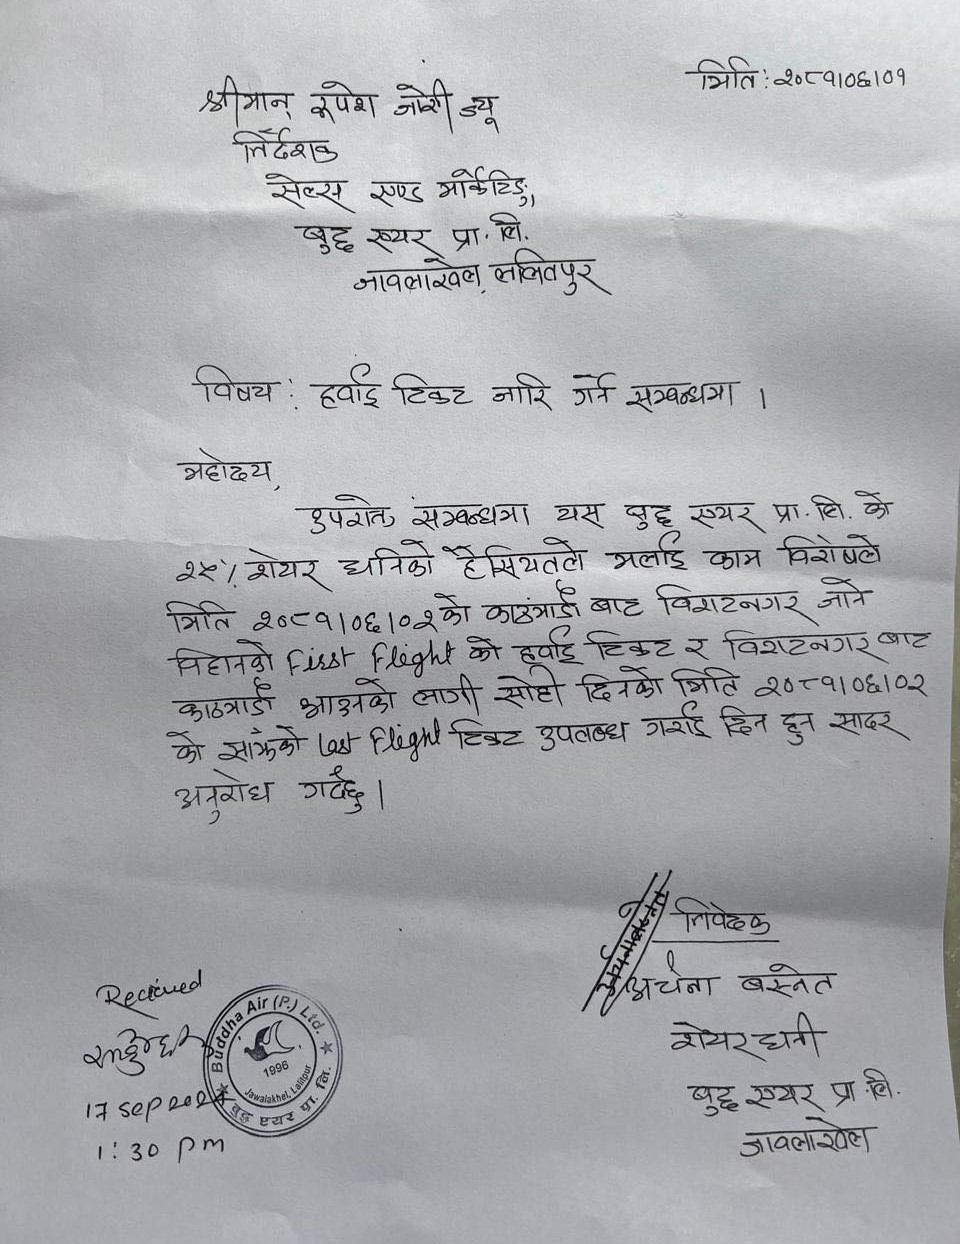 मिति: २०८१।०६।०१
श्रीमान् रुपेश जोशी ज्यू
निर्देशक
सेल्स एण्ड मार्केटिङ्,
बुद्ध एयर प्रा. लि.
जावलाखेल, ललितपुर
विषय: हवाई टिकट जारि गर्ने सम्बन्धमा ।
महोदय,
उपरोक्त सम्बन्धमा यस बुद्ध एयर प्रा. लि. को
२५% शेयर धनिको हैसियतले मलाई काम विशेषले
मिति २०८१।०६।०२ को काठमाडौं बाट विराटनगर जाने
विहानको First Flight को हवाई टिकट र विराटनगर बाट
काठमाडौं आउनको लागी सोही दिनको मिति २०८१।०६।०२
को साँझको last Flight टिकट उपलब्ध गराई दिन हुन सादर
अनुरोध गर्दछु ।
निवेदक
अर्चना बस्नेत
शेयर धनी
बुद्ध एयर प्रा. लि.
जावलाखेल
Recieved
17 Sep 2024
1:30 pm
Buddha Air (P.) Ltd.
1996
Jawalakhel, Lalitpur
बुद्ध एयर प्रा. लि.